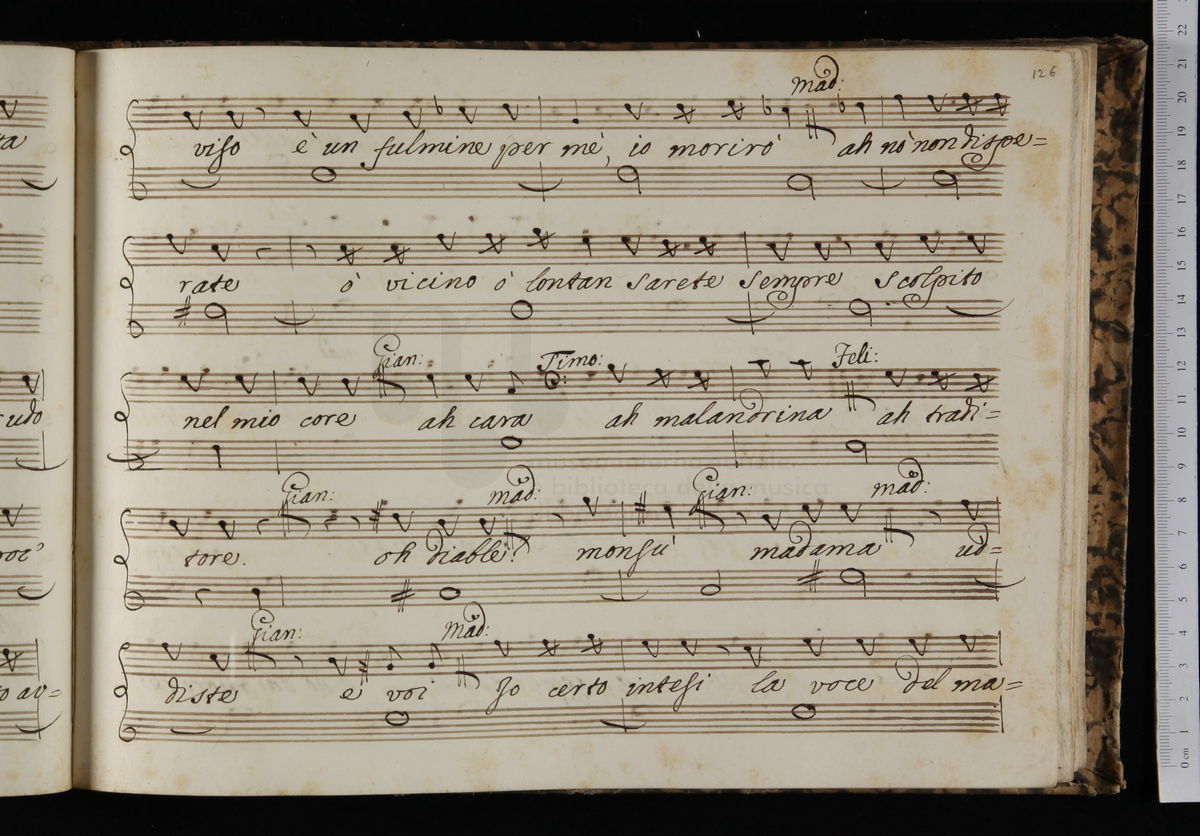 126
Mad:
viso è un fulmine per mè, io morirò ah nò non dispe=
rate ò vicino ò lontan sarete sempre scolpito
Gian: Timo: Feli:
nel mio core ah cara ah malandrina ah tradi=
Gian: mad: Gian: mad:
tore. oh diable! monsù madama ud=
Gian: Mad:
diste e voi Io certo intesi la voce del ma=
ta
udo
voc'
to av=
biblioteca de la musica
22
21
20
19
18
17
16
15
14
13
12
11
10
9
8
7
6
5
4
3
2
1
0 cm